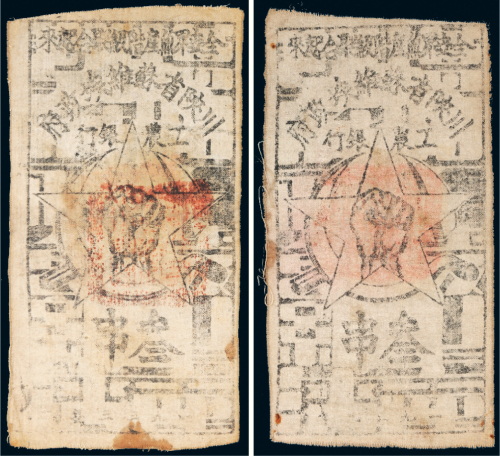 全世界無產階級聯合起來
川陝省蘇維埃政府
工農銀行
叁串
全世界無產階級聯合起來
川陝省蘇維埃政府
工農銀行
叁串